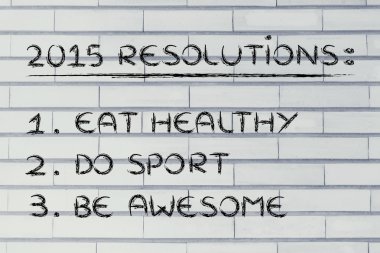 2015 RESOLUTIONS:
1. EAT HEALTHY
2. DO SPORT
3. BE AWESOME